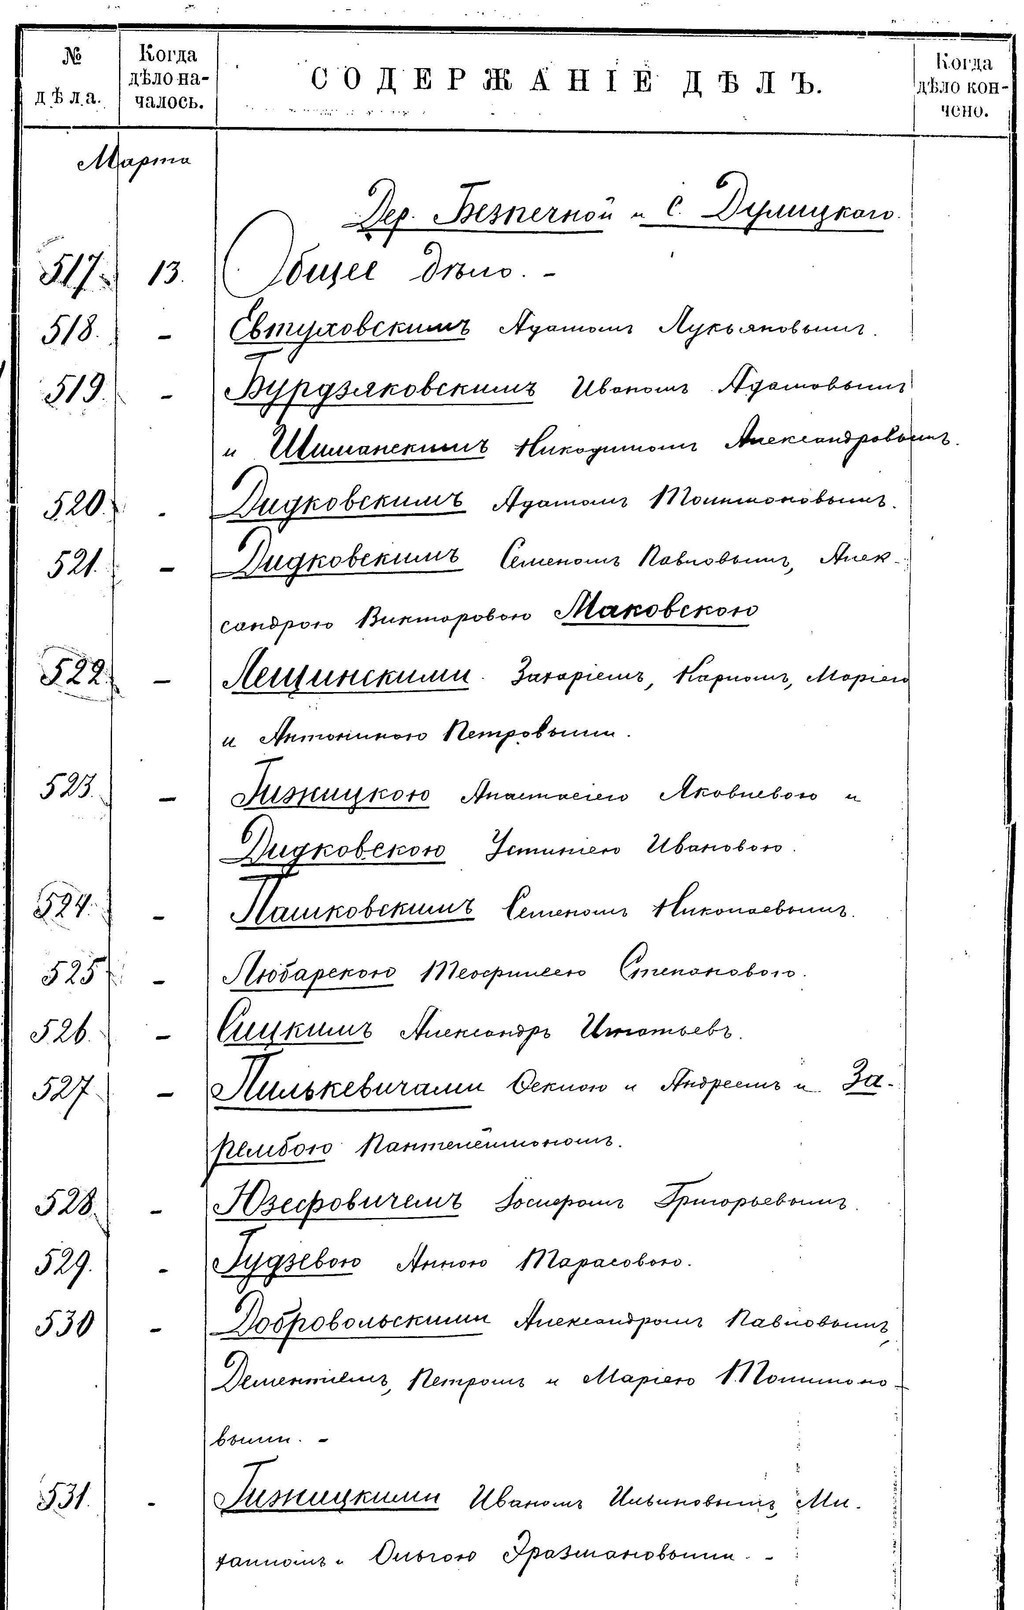 № дѣла.
Когда дѣло на-
чалось.
СОДЕРЖАНІЕ ДѢЛЪ.
Когда дѣло кон-
чено.
Марта
Дер. Безпечной и с. Дулицкого.
517. 13. Общее дѣло. -
518. - Евтуховскимъ Адамомъ Лукьяновымъ.
519. - Бурдзяковскимъ Иваномъ Адамовымъ
и Шиманскимъ Никодимомъ Александровымъ.
520. - Дидковскимъ Адамомъ
521. - Дидковскимъ Семеномъ Павловымъ, Алек-
сандрою Викторовою Маковскою
522. - Лещинскими Захаріемъ, Карпомъ, Маріею
и Антониною Петровыми.
523. - Гижицкою Анастасіею Яковлевою и
Дидковскою Устиніею Ивановою.
524. - Пашковскимъ Семеномъ Николаевымъ.
525 - Любарскою Теофилею Степановою.
526. - Сицкимъ Александръ Игнатьевъ.
527. - Пилькевичами Феклою и Андреемъ и За-
рембою Пантелеймономъ.
528. - Юзефовичемъ Іосифомъ Григорьевымъ.
529. - Гудзевою Анною Тарасовою.
530 - Добровольскими Александромъ Павловымъ,
Дементіемъ, Петромъ и Маріею
выми. -
531. - Гижицкими Иваномъ Ильиновымъ, Ми-
хаиломъ и Ольгою Эразмановыми. -